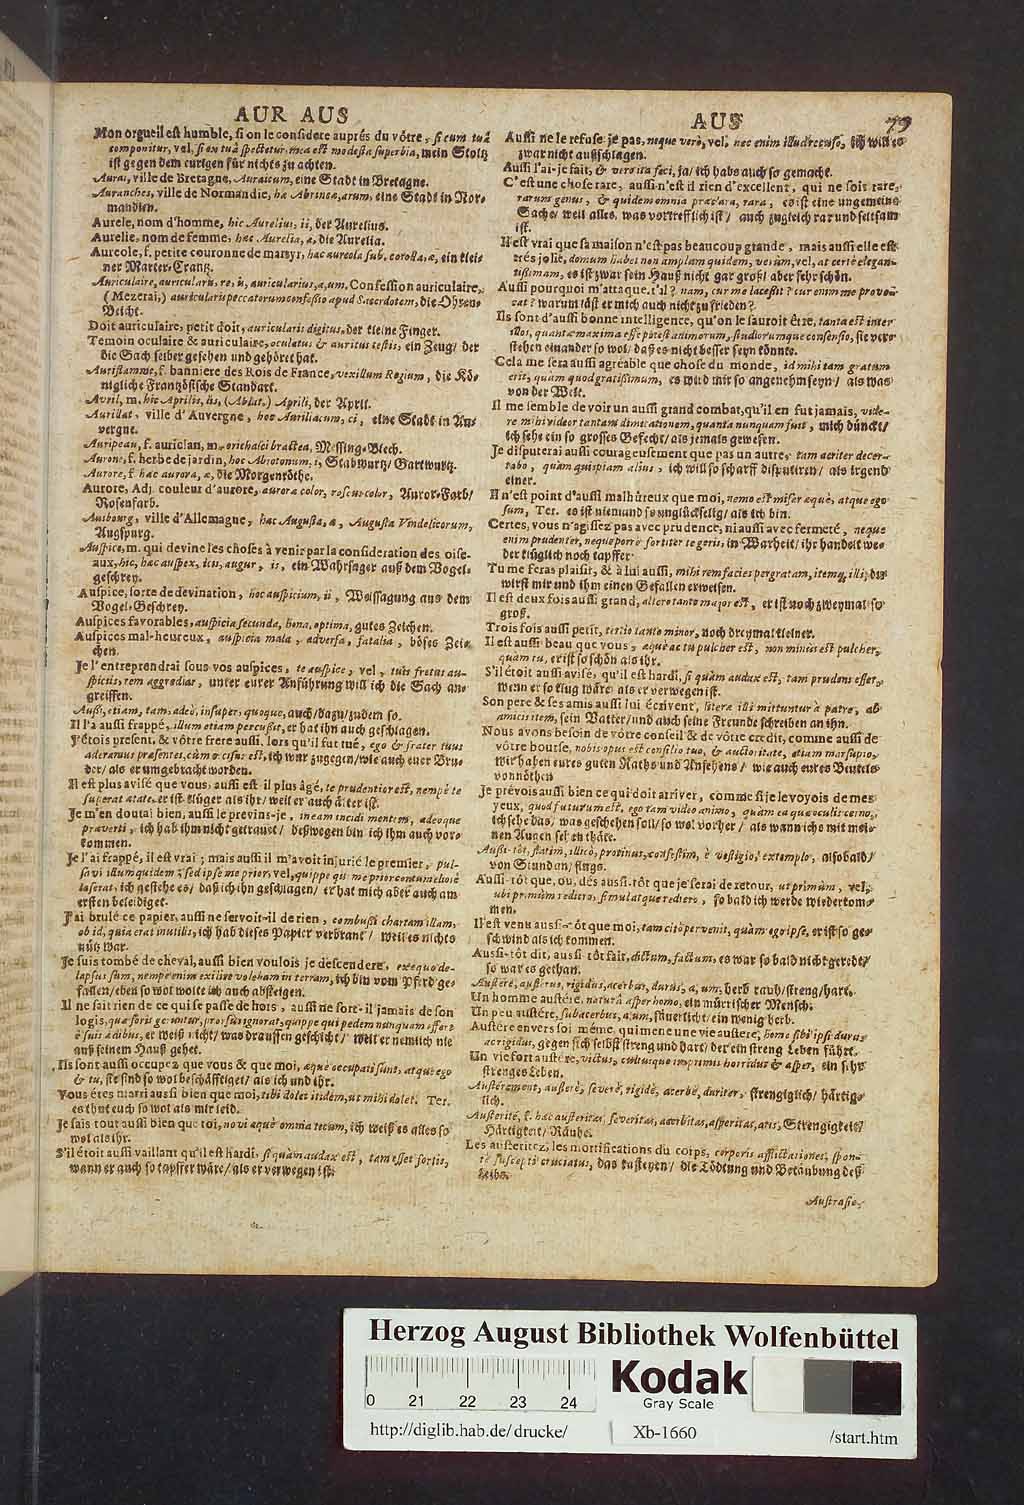 AUR AUS
Mon orgueil est humble, si on le considere auprés du vôtre, si cum tuâ
componitur, vel, si ex tuâ spectetur, mea est modesta superbia, mein Stoltz
ist gegen dem eurigen für nichts zu achten.
Aurai, ville de Bretagne, Auraicum, eine Stadt in Bretagne.
Auranches, ville de Normandie, hæ Abrincæ, arum, eine Stadt in Nor-
mandien.
Aurele, nom d'homme, hic Aurelius, ii, der Aurelius.
Aurelie, nom de femme, hæc Aurelia, æ, die Aurelia.
Aureole, f. petite couronne de martyr, hæc aureola sub. corolla, æ, ein klei-
ner Marter-Crantz.
Auriculaire, auricularis, re, ù, auricularius, a, um, Confession auriculaire,
(Mezerai,) auricularis peccatorum confessio apud Sacerdotem, die Ohren-
Beicht.
Doit auriculaire, petit doit, auricularis digitus, der kleine Finger.
Temoin oculaire & auriculaire, oculatus & auritus testis, ein Zeug/ der
die Sach selber gesehen und gehöret hat.
Auriflamme, f. banniere des Rois de France, vexillum Regium, die Kö-
nigliche Frantzösische Standart.
Avril, m. hic Aprilis, lis, (Ablat.) Aprili, der April.
Aurillat, ville d'Auvergne, hoc Auriliacum, ci, eine Stadt in Au-
vergne.
Auripeau, f. auriclan, m. orichalci bractea, Messing-Blech.
Aurone, f. herbe de jardin, hoc Abrotonum, i, Stabwurtz/ Gartwurtz.
Aurore, f. hæc aurora, æ, die Morgenröthe.
Aurore, Adj. couleur d'aurore, aurora color, roseus color, Auror-Farb/
Rosenfarb.
Ausbourg, ville d'Allemagne, hæc Augusta, æ, Augusta Vindelicorum,
Augspurg.
Auspice, m. qui devine les choses à venir par la consideration des oise-
aux, hic, hæc auspex, icis, augur, is, ein Wahrsager auß dem Vogel-
geschrey.
Auspice, sorte de devination, hoc auspicium, ii, Weissagung aus dem
Vogel-Geschrey.
Auspices favorables, auspicia secunda, bona, optima, gutes Zeichen.
Auspices mal-heureux, auspicia mala, adversa, fatalia, böses Zei-
chen.
Je l'entreprendrai sous vos auspices, te auspice, vel, tuis fretus au-
spiciis, rem aggrediar, unter eurer Anführung will ich die Sach an-
greiffen.
Aussi, etiam, tam, adeò, insuper, quoque, auch/dazu/zudem so.
Il l'a aussi frappé, illum etiam percussit, er hat ihn auch geschlagen.
J'étois present, & vôtre frere aussi, lors qu'il fut tué, ego & frater tuus
aderamus præsentes, cùm occisus est, ich war zugegen/wie auch euer Bru-
der/ als er umgebracht worden.
Il est plus avisé que vous, aussi est-il plus âgé, te prudentior est, nempè te
superat ætate, er ist klüger als ihr/ weil er auch älter ist.
Je m'en doutai bien, aussi le previns-je, in eam incidi mentem, adeoque
præverti, ich hab ihm nicht getrauet/ deßwegen bin ich ihm auch vor-
kommen.
Je l'ai frappé, il est vrai; mais aussi il m'avoit injurié le premier, pul-
savi illum quidem; sed ipse me prior, vel, quippe qui me prior contumeliosè
læserat, ich gestehe es/ daß ich ihn geschlagen/ er hat mich aber auch am
ersten beleidiget.
J'ai brulé ce papier, aussi ne servoit-il de rien, combussi chartam illam,
ob id, quia erat inutilis, ich hab dieses Papier verbrant/ weil es nichts
nütz war.
Je suis tombé de cheval, aussi bien voulois je descendere, ex equo de-
lapsus sum, nempe enim exilire volebam in terram, ich bin vom Pferd ge-
fallen/eben so wol wolte ich auch absteigen.
Il ne fait rien de ce qui se passe de hors, aussi ne sort-il jamais de son
logis, quæ foris geruntur, prorsùs ignorat, quippe qui pedem nunquam effert
è suis ædibus, er weiß nicht/ was draussen geschicht/ weil er nemlich nie
auß seinem Hauß gehet.
Ils sont aussi occupez que vous & que moi, æquè occupati sunt, atque ego
& tu, sie sind so wol beschäfftiget/ als ich und ihr.
Vous étes marri aussi bien que moi, tibi dolet itidem, ut mihi dolet. Ter.
es thut euch so wol als mir leid.
Je sais tout aussi bien que toi, novi æquè omnia tecum, ich weiß es alles so
wol als ihr.
S'il étoit aussi vaillant qu'il est hardi, si quàm audax est, tam esset fortis,
wann er auch so tapffer wäre/als er verwegen ist.
AUS
79
Aussi ne le refuse-je pas, neque verò, vel, nec enim illud recuso, ich will es
zwar nicht außschlagen.
Aussi l'ai-je fait, & vero ita feci, ja/ ich habs auch so gemacht.
C'est une chose rare, aussi n'est il rien d'excellent, qui ne sois rare,
rarum genus, & quidem omnia præclara, rara, es ist eine ungemeine
Sache/ weil alles, was vortrefflich ist/ auch zugleich rar und seltsam
ist.
Il est vrai que sa maison n'est pas beaucoup grande, mais aussi elle est
trés jolie, domum habet non amplam quidem, verùm, vel, at certè elegan-
tissimam, es ist zwar sein Hauß nicht gar groß/ aber sehr schön.
Aussi pourquoi m'attaque t'il? nam, cur me lacessit? cur enim me provo-
cat? warum läst er mich auch nicht zu frieden?
Ils sont d'aussi bonne intelligence, qu'on le sauroit être, tanta est inter
illos, quanta maxima esse potest animorum, studiorumque consensio, sie ver-
stehen einander so wol/ daß es nicht besser seyn könnte.
Cela me sera aussi agreable que chose du monde, id mihi tam gratum
erit, quàm quod gratissimum, es wird mir so angenehm seyn/ als was
von der Welt.
Il me semble de voir un aussi grand combat, qu'il en fut jamais, vide-
re mihi videor tantam dimicationem, quanta nunquam fuit, mich dünckt/
ich sehe ein so grosses Gefecht/ als jemals gewesen.
Je disputerai aussi courageusement que pas un autre, tam acriter decer-
tabo, quàm quispiam alius, ich will so scharff disputiren/ als irgend
einer.
Il n'est point d'aussi malhûreux que moi, nemo est miser æquè, atque ego
sum, Ter. es ist niemand so unglückselig/ als ich bin.
Certes, vous n'agissez pas avec prudence, ni aussi avec fermeté, neque
enim prudenter, neque porrò fortiter te geris, in Warheit/ ihr handelt we-
der klüglich noch tapffer.
Tu me feras plaisir, & à lui aussi, mihi rem facies pergratam, itemq, illi; du
wirst mir und ihm einen Gefallen erweisen.
Il est deux fois aussi grand, altero tanto major est, er ist noch zweymal so
groß.
Trois fois aussi petit, tertio tanto minor, noch dreymal kleiner.
Il est aussi beau que vous, æquè ac tu pulcher est, non minùs est pulcher,
quàm tu, er ist so schön als ihr.
S'il étoit aussi avisé, qu'il est hardi, si quàm audax est, tam prudens esset,
wenn er so klug wäre/ als er verwegen ist.
Son pere & ses amis aussi lui écrivent, literæ illi mittuntur à patre, ab
amicis item, sein Vatter/und auch seine Freunde schreiben an ihn.
Nous avons besoin de vôtre conseil & de vôtre credit, comme aussi de
vôtre bourse, nobis opus est consilio tuo, & auctoritate, etiam marsupio,
wir haben eures guten Raths und Ansehens/ wie auch eures Beutels
vonnöthen
Je prévois aussi bien ce qui doit arriver, comme si je le voyois de mes
yeux, quod futurum est, ego tam video animo, quàm ea quæ oculis cerno,
ich sehe das/ was geschehen soll/ so wol vorher/ als wann ichs mit mei-
nen Augen sehen thäte.
Aussi-tôt, statim, illicò, protinus, confestim, è vestigio, extemplo, alsobald/
von Stundan/ flugs.
Aussi-tôt que, ou, dés aussi-tôt que je serai de retour, ut primùm, vel,
ubi primùm rediero, simul atque rediero, so bald ich werde wiederkom-
men.
Il est venu aussi-tôt que moi, tam citò pervenit, quàm ego ipse, er ist so ge-
schwind als ich kommen.
Aussi-tôt dit, aussi tôt fait, dictum, factum, es war so bald nicht geredt/
so war es gethan.
Austére, austerus, rigidus, acerbus, durus, a, um, herb rauh/streng/hart.
Un homme austére, naturâ asper homo, ein mürrischer Mensch.
Un peu austére, subacerbus, a, um, säuerlicht/ ein wenig herb.
Austére envers soi même, qui mene une vie austere, homo sibi ipsi durus
ac rigidus, gegen sich selbst streng und hart/ der ein streng Leben führt.
Un vie fort austére, victus, cultusque inprimis horridus & asper, ein sehr
strenges Leben.
Austérement, austerè, severè, rigidè, acerbè, duriter, strengiglich/ härtig-
lich.
Austerité, f. hæc austeritas, severitas, acerbitas, asperitas, atis, Strengigkeit/
Härtigkeit/ Räuhe.
Les austéritez, les mortifications du corps, corporis afflictationes, spon-
te suscepti cruciatus, das kasteyen/ die Tödtung und Betäubung deß
Leibs.
Austrasie,
Herzog August Bibliothek Wolfenbüttel
0 21 22 23 24
Kodak
Gray Scale
http://diglib.hab.de/drucke/ Xb-1660 /start.htm